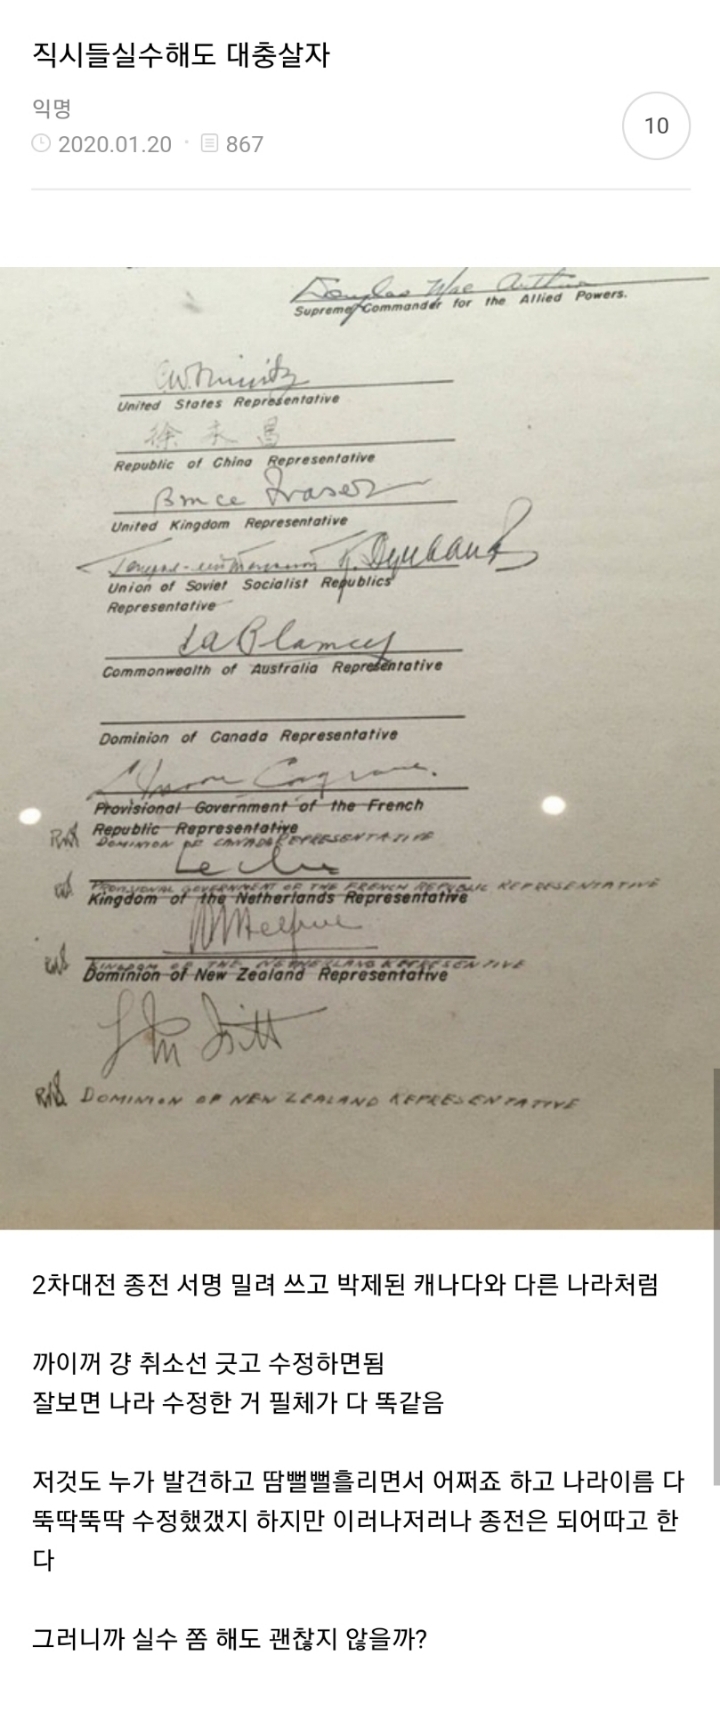 직시들실수해도 대충살자
익명
2020.01.20 · 867
10
Douglas MacArthur
Supreme Commander for the Allied Powers.
C.W. Nimitz
United States Representative
徐永昌
Republic of China Representative
Bruce Fraser
United Kingdom Representative
Union of Soviet Socialist Republics
Representative
Blamey
Commonwealth of Australia Representative
Dominion of Canada Representative
Cosgrave.
Provisional Government of the French
Republic Representative
DOMINION OF CANADA REPRESENTATIVE
Leclerc
PROVISIONAL GOVERNMENT OF THE FRENCH REPUBLIC REPRESENTATIVE
Kingdom of the Netherlands Representative
Helfrich
KINGDOM OF THE NETHERLANDS REPRESENTATIVE
Dominion of New Zealand Representative
Isitt
DOMINION OF NEW ZEALAND REPRESENTATIVE
2차대전 종전 서명 밀려 쓰고 박제된 캐나다와 다른 나라처럼
까이꺼 걍 취소선 긋고 수정하면됨
잘보면 나라 수정한 거 필체가 다 똑같음
저것도 누가 발견하고 땀뻘뻘흘리면서 어쩌죠 하고 나라이름 다
뚝딱뚝딱 수정했갰지 하지만 이러나저러나 종전은 되어따고 한
다
그러니까 실수 쫌 해도 괜찮지 않을까?